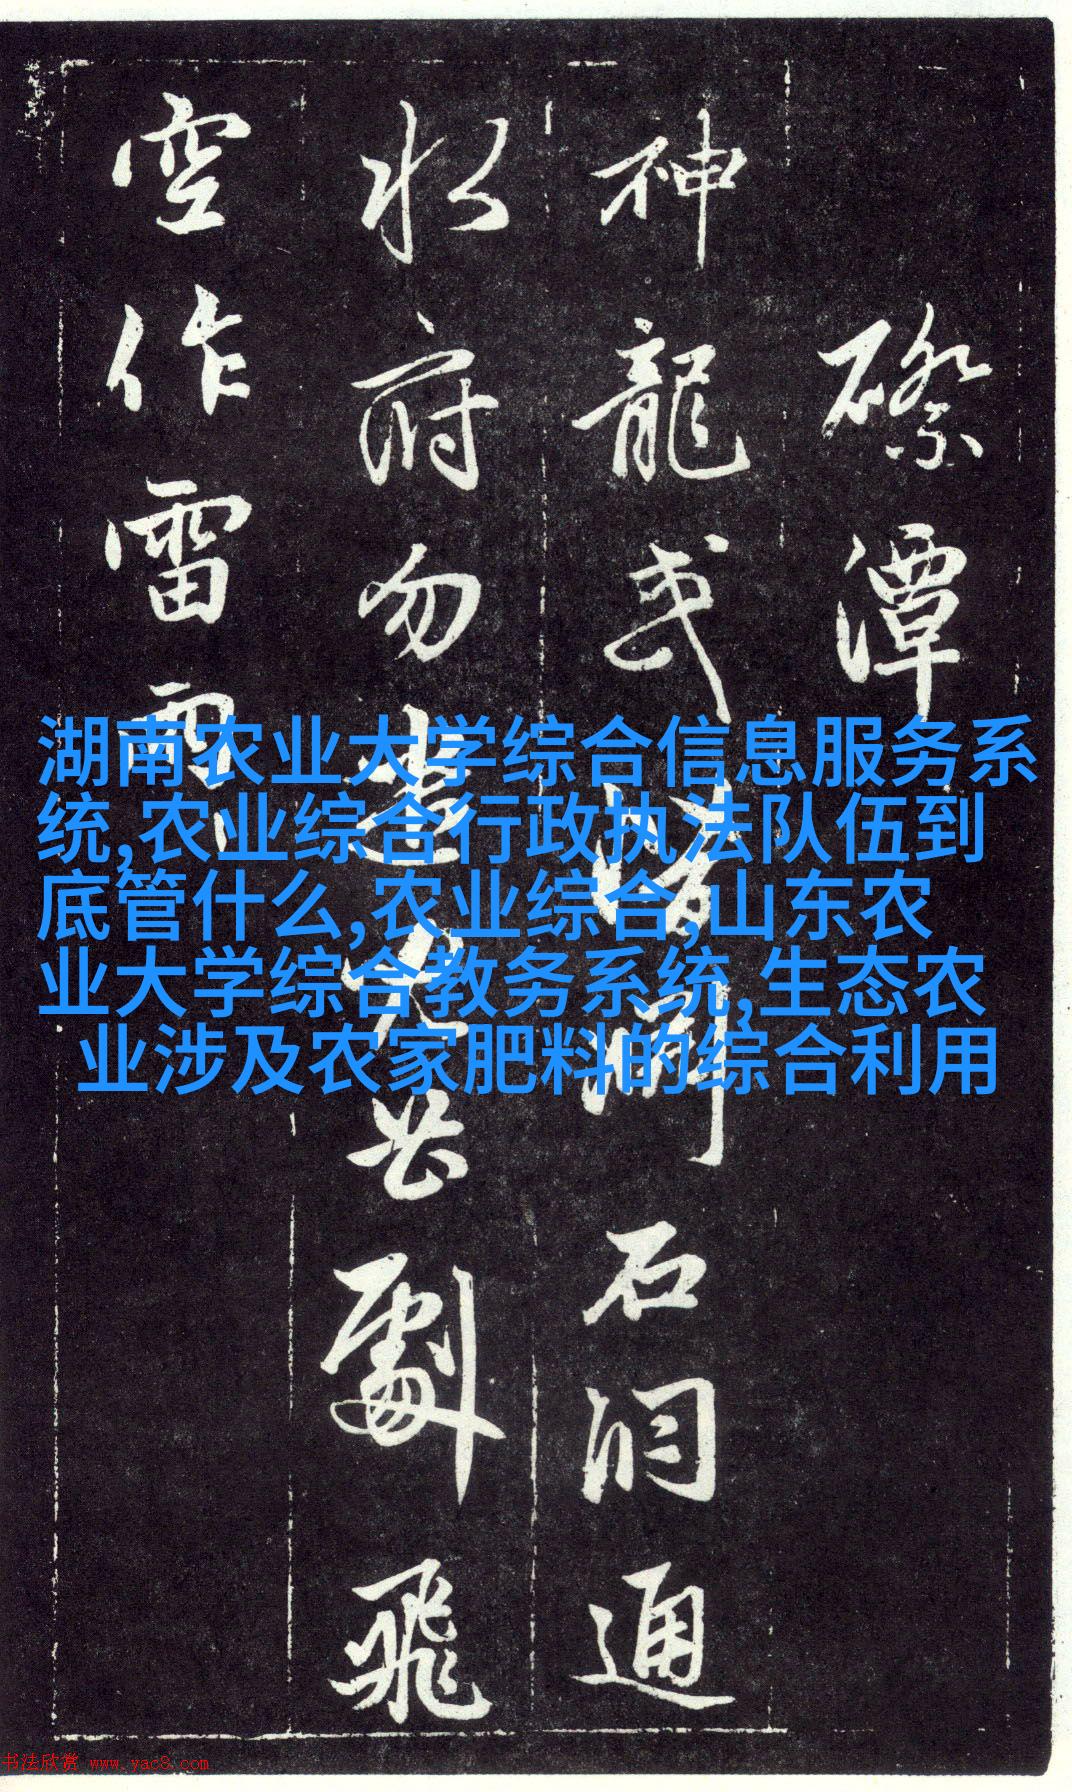 磜潭
神龍或潛 石洞通
水府勿 劚飛
空作雷雨
湖南农业大学综合信息服务系
统,农业综合行政执法队伍到
底管什么,农业综合,山东农
业大学综合教务系统,生态农
业涉及农家肥料的综合利用
书法欣赏 www.yac8.com